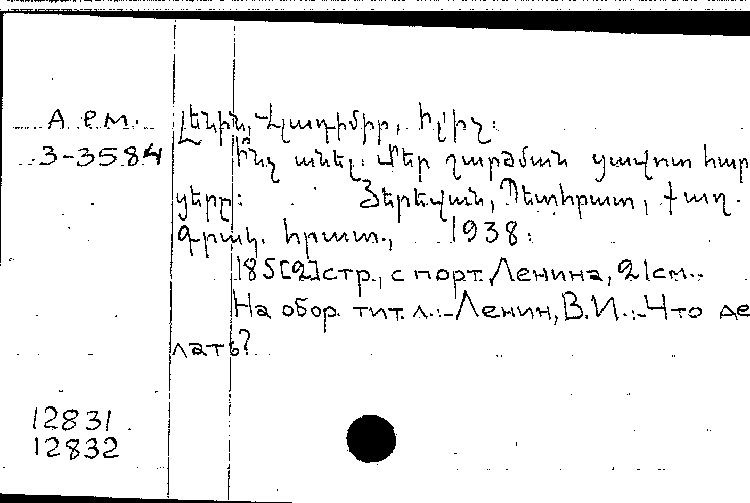 Арм. Լենին, Վլադիմիր, Իլիչ:
3-3584 Ի՞նչ անել: Մեր շարժման ցավոտ հար
ցերը: Յերեվան, Պետհրատ, քաղ.
գրակ. հրատ., 1938:
185[2]стр., с порт. Ленина, 21см.
На обор. тит. л.:-Ленин, В.И.:-Что де
лать?
12831
12832